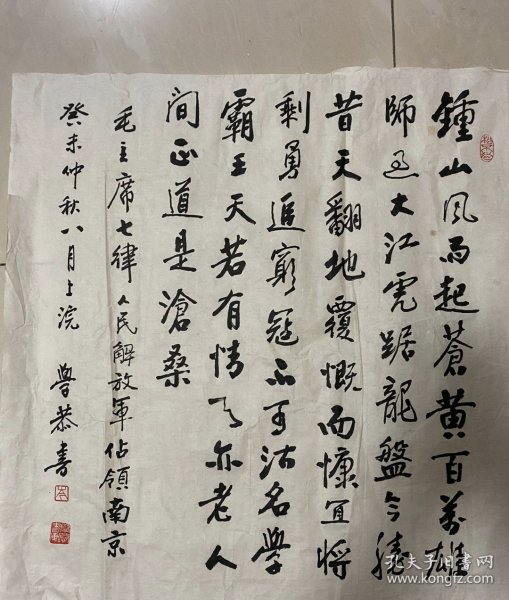 鍾山風雨起蒼黃百萬雄
師過大江虎踞龍盤今勝
昔天翻地覆慨而慷宜將
剩勇追窮寇不可沽名學
霸王天若有情天亦老人
間正道是滄桑
毛主席七律人民解放軍佔領南京
癸未仲秋八月上浣 學恭書
孔夫子旧书网
www.kongfz.com